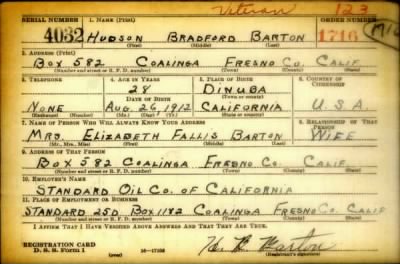 Veteran 123
SERIAL NUMBER 1. NAME (Print) ORDER NUMBER
4032 HUDSON BRADFORD BARTON 1716
(First) (Middle) (Last)
2. ADDRESS (Print)
BOX 582 COALINGA FRESNO CO. CALIF.
(Number and street or R. F. D. number) (Town) (County) (State)
3. TELEPHONE 4. AGE IN YEARS 5. PLACE OF BIRTH 6. COUNTRY OF CITIZENSHIP
28 DINUBA
DATE OF BIRTH (Town or county)
NONE AUG. 26, 1912 CALIFORNIA U.S.A.
(Exchange) (Number) (Mo.) (Day) (Yr.) (State or country)
7. NAME OF PERSON WHO WILL ALWAYS KNOW YOUR ADDRESS 8. RELATIONSHIP OF THAT PERSON
MRS. ELIZABETH FALLIS BARTON WIFE
(Mr., Mrs., Miss) (First) (Middle) (Last)
9. ADDRESS OF THAT PERSON
BOX 582 COALINGA FRESNO CO. CALIF.
(Number and street or R. F. D. number) (Town) (County) (State)
10. EMPLOYER'S NAME
STANDARD OIL CO. OF CALIFORNIA
11. PLACE OF EMPLOYMENT OR BUSINESS
STANDARD 25D BOX 1182 COALINGA FRESNO CO. CALIF
(Number and street or R. F. D. number) (Town) (County) (State)
I AFFIRM THAT I HAVE VERIFIED ABOVE ANSWERS AND THAT THEY ARE TRUE.
REGISTRATION CARD
D. S. S. Form 1 16-17105 H. B. Barton
(Registrant's signature)